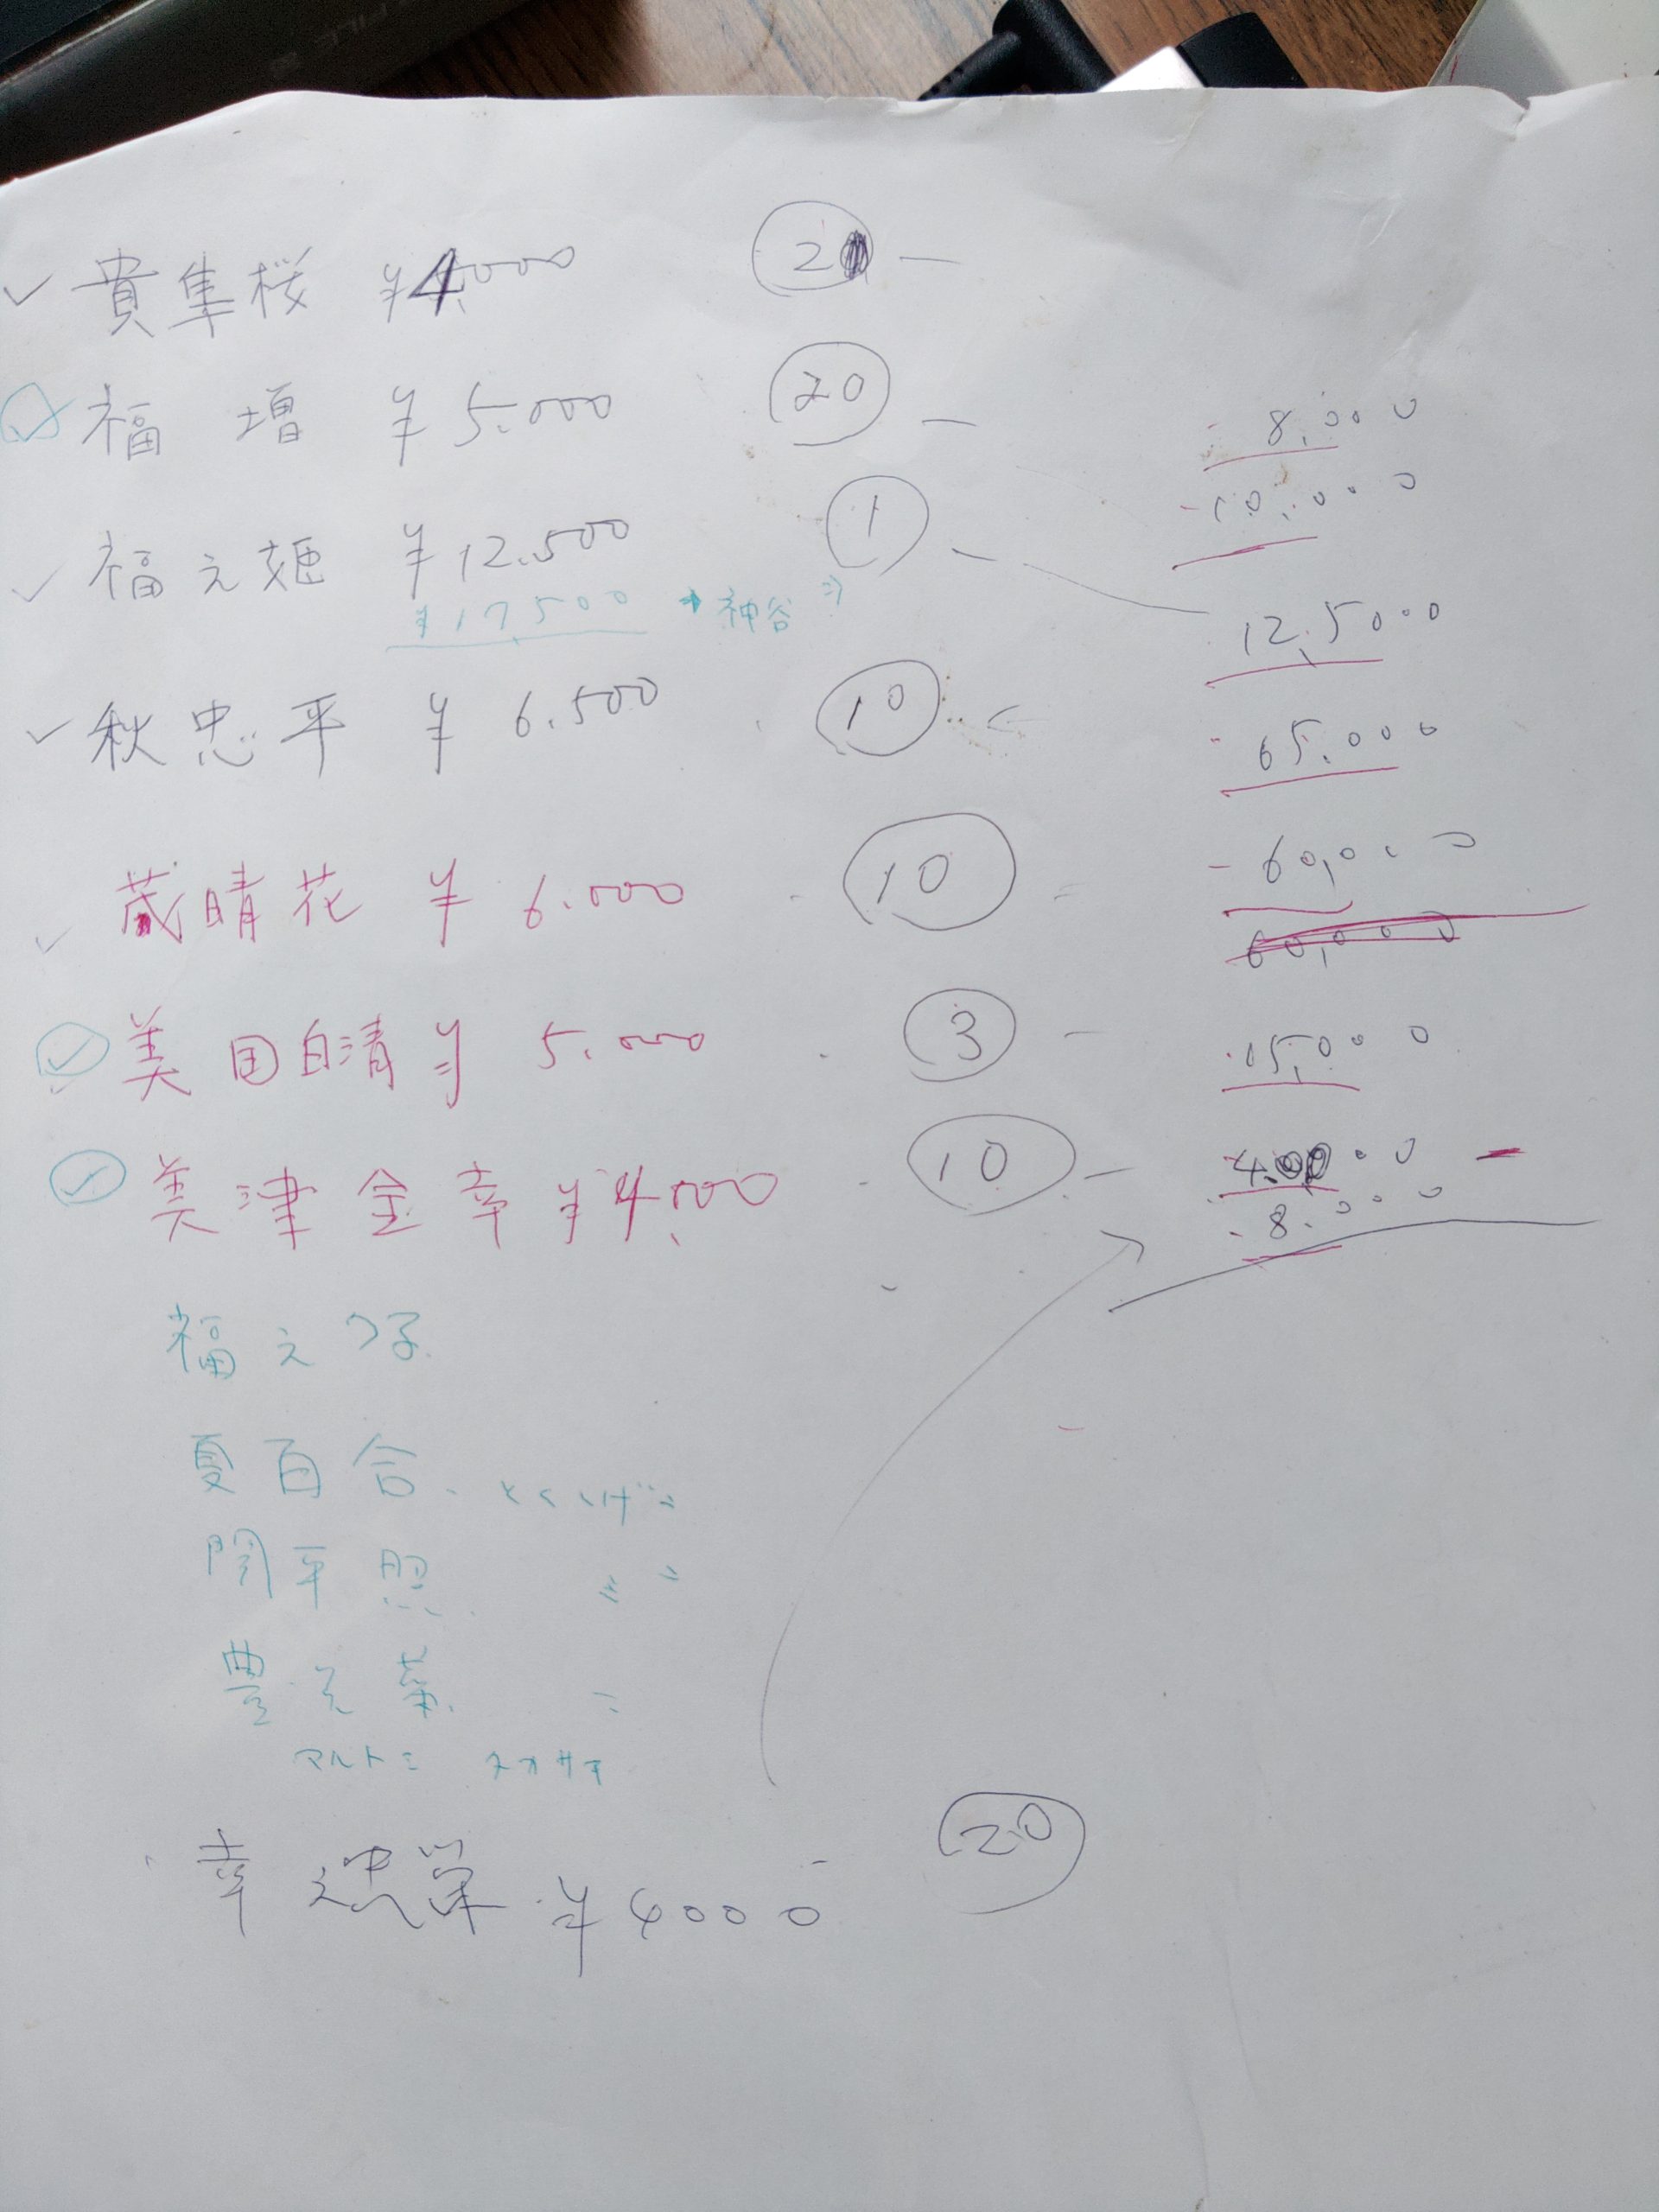 FILE
貴隼桜 ¥4,000 2 —
福増 ¥5.000 20 —
8,000
10,000
福之姫 ¥12.500 1 —
12,5000
¥17,500 → 神谷
秋忠平 ¥6.500 10
65.000
茂晴花 ¥6.000 10
60,000
60,000
美国白清 ¥5.000 3 —
15,000
美津金幸 ¥4,000 10 —
40000 —
8.000
福之
夏百合、
関平照
豊元菊
マルトミ
幸之忠栄 ¥4000 20